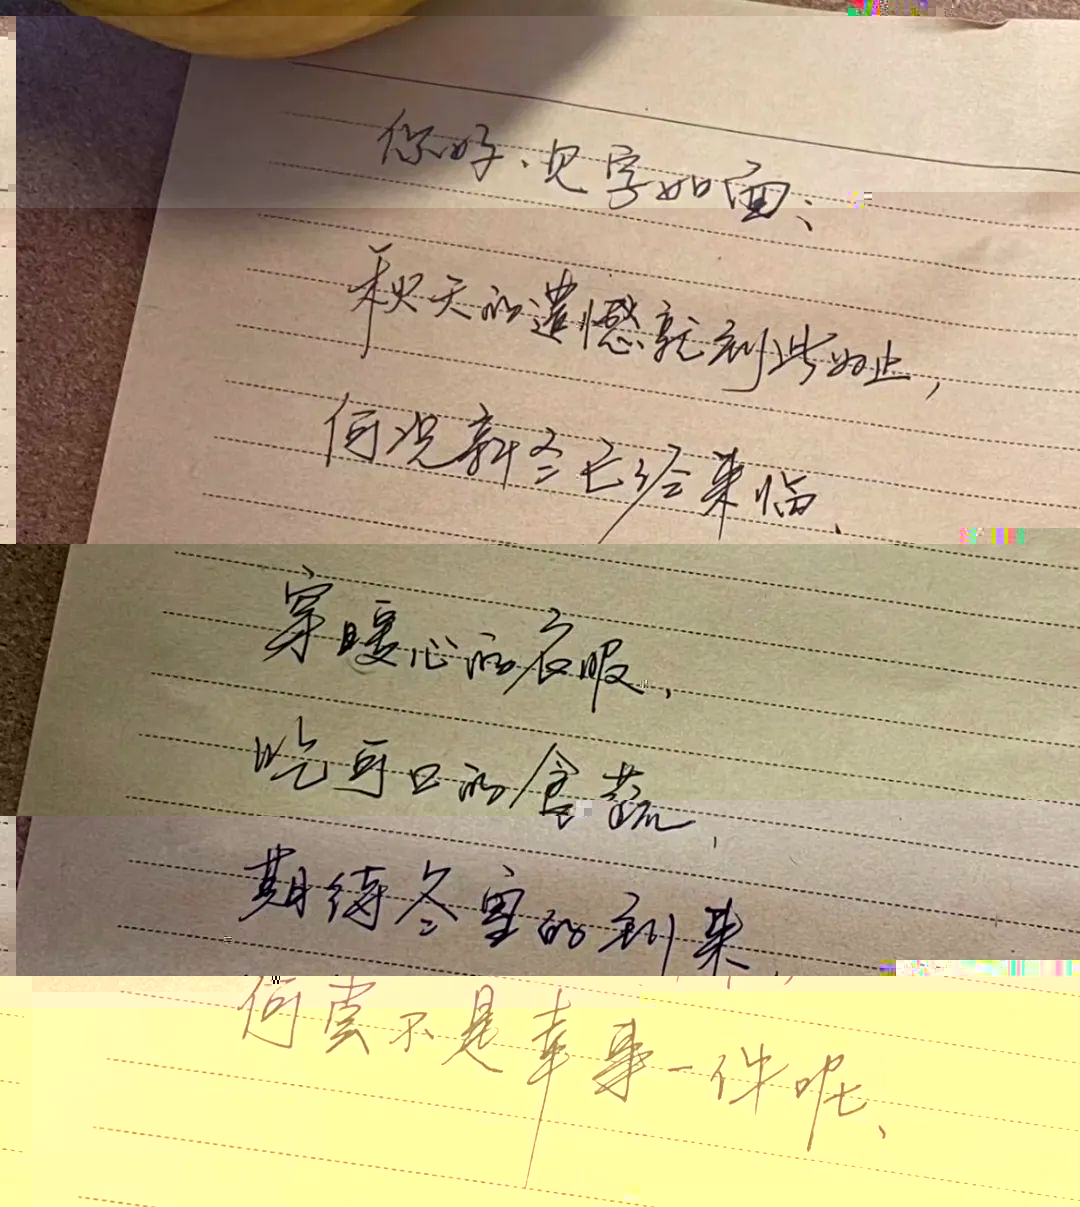 你好、见字如面、
秋天的遗憾就到此为止，
何况新冬已经来临、
穿暖心的衣服、
吃可口的食蔬，
期待冬雪的到来，
何尝不是幸事一件呢、